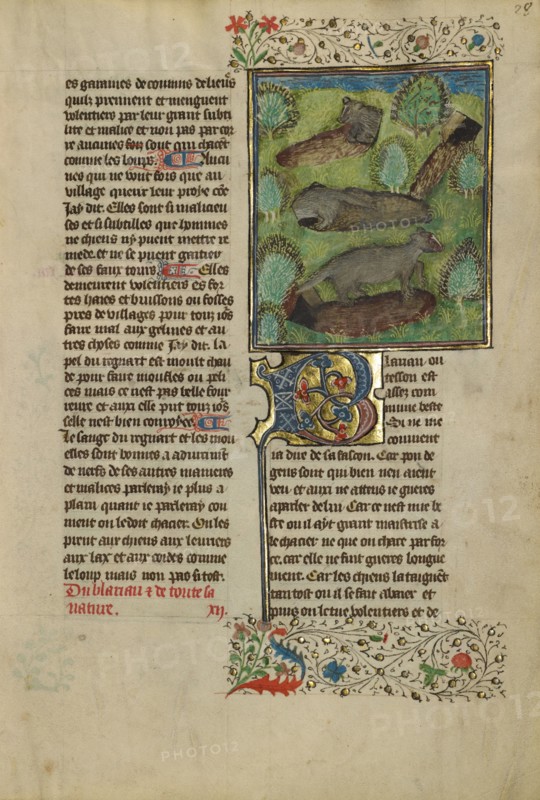 29
es garannes de connins de lieus
quilz prennent et menguent
volentiers par leur grant subti
lite et malice et non pas par cor
re aucunes sont qui chacēt
comme les loups. Aucu
nes qui ne vont fors que au
village querir leur proye cōe
Jay dit. Elles sont si malicieu
ses et si subtilles que hommes
ne chiens ny puent mettre re
mede et ne se puent garder
de ses faux tours. Elles
demeurent volentiers es for
tes hayes et buissons ou fosses
pres de villages pour touz iōs
faire mal aux gelines et au
tres choses comme Jay dit. la
pel du regnart est moult chau
de pour faire moufles ou peli
ces mais ce nest pas belle four
reure et aux elle put touz iōs
selle nest bien conroyee.
Le saing du regnart et les mou
elles sont bonnes a adurcist
de nerfs de ses autres manieres
et malices parleray ie plus a
plain quant ie parleray com
ment on le doit chacier. On les
prent aux chiens aux leuriers
aux laz et aux cordes comme
le loup mais non pas si tost.
Du blariau et de toute sa
nature. xij.
Blariau ou
tesson est
assez com
mune beste
Qui ne me
couuient
ia dire de sa facon. Car pou de
gens sont qui bien nen aient
veu et aux ne attens ie gueres
a parler de lui. Car ce nest mie be
ste ou il ayt grant maistrise a
le chacier ne que on chace par for
ce. car elle ne fuit gueres longue
ment. Car les chiens lataignēt
tantost ou il se fait abaier et
puis on le tue volentiers et de
PHOTO12